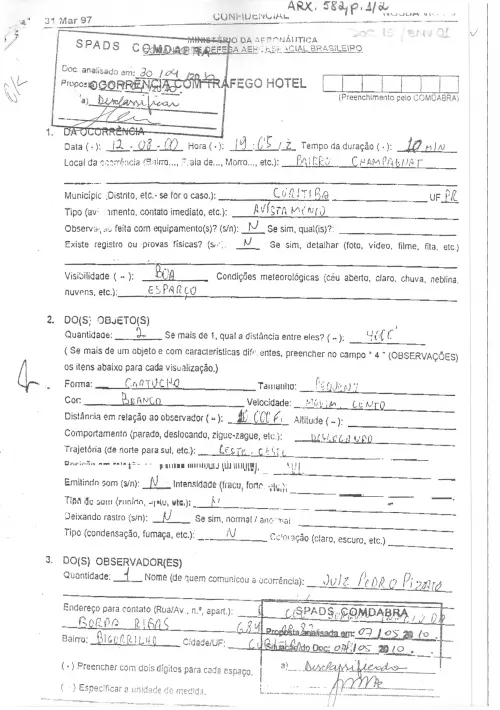 ARX. 582, p. 1/2
31 Mar 97 CONFIDENCIAL
DOC 15 / ENV 01
MINISTÉRIO DA AERONÁUTICA
DE DEFESA AEROESPACIAL BRASILEIRO
SPADS COMDABRA
Doc. analisado em: 30/04/2010
Proposta
a) Desclassificar
OCORRÊNCIA COM TRÁFEGO HOTEL
OK
(Preenchimento pelo COMDABRA)
1. DA OCORRÊNCIA
Data ( - ): 12 - 08 - 00 Hora ( - ): 19 : 05 / Z Tempo da duração ( - ): 10 MIN
Local da ocorrência (Bairro..., Baía de..., Morro..., etc.): BAIRRO CHAMPAGNAT
Município (Distrito, etc.- se for o caso.): CURITIBA UF PR
Tipo (avistamento, contato imediato, etc.): AVISTAMENTO
Observação feita com equipamento(s)? (s/n): N Se sim, qual(is)?:
Existe registro ou provas físicas? (s/n): N Se sim, detalhar (foto, vídeo, filme, fita, etc.)
Visibilidade ( - ): BOA Condições meteorológicas (céu aberto, claro, chuva, neblina,
nuvens, etc.): ESPARÇO
2. DO(S) OBJETO(S)
Quantidade: 2 Se mais de 1, qual a distância entre eles? ( - ):
( Se mais de um objeto e com características diferentes, preencher no campo " 4 " (OBSERVAÇÕES)
os itens abaixo para cada visualização.)
Forma: CARTUCHO Tamanho: PEQUENO
Cor: BRANCO Velocidade: LENTO
Distância em relação ao observador ( - ): Altitude ( - ):
Comportamento (parado, deslocando, zigue-zague, etc.): DESLOCANDO
Trajetória (de norte para sul, etc.): LESTE - OESTE
Emitindo som (s/n): N Intensidade (fraco, forte, etc.):
Tipo de som (zunido, apito, etc.): N
Deixando rastro (s/n): N Se sim, normal / anormal
Tipo (condensação, fumaça, etc.): N Coloração (claro, escuro, etc.)
3. DO(S) OBSERVADOR(ES)
Quantidade: 1 Nome (de quem comunicou a ocorrência): LUIZ PEDRO
Endereço para contato (Rua/Av., n.º, apart.):
Bairro: BIGORRILHO Cidade/UF:
SPADS COMDABRA
Proposta analisada em: 07/05/2010
Situação do Doc: 07/05/2010
a) Desclassificado
( - ) Preencher com dois dígitos para cada espaço.
( ) Especificar a unidade de medida.